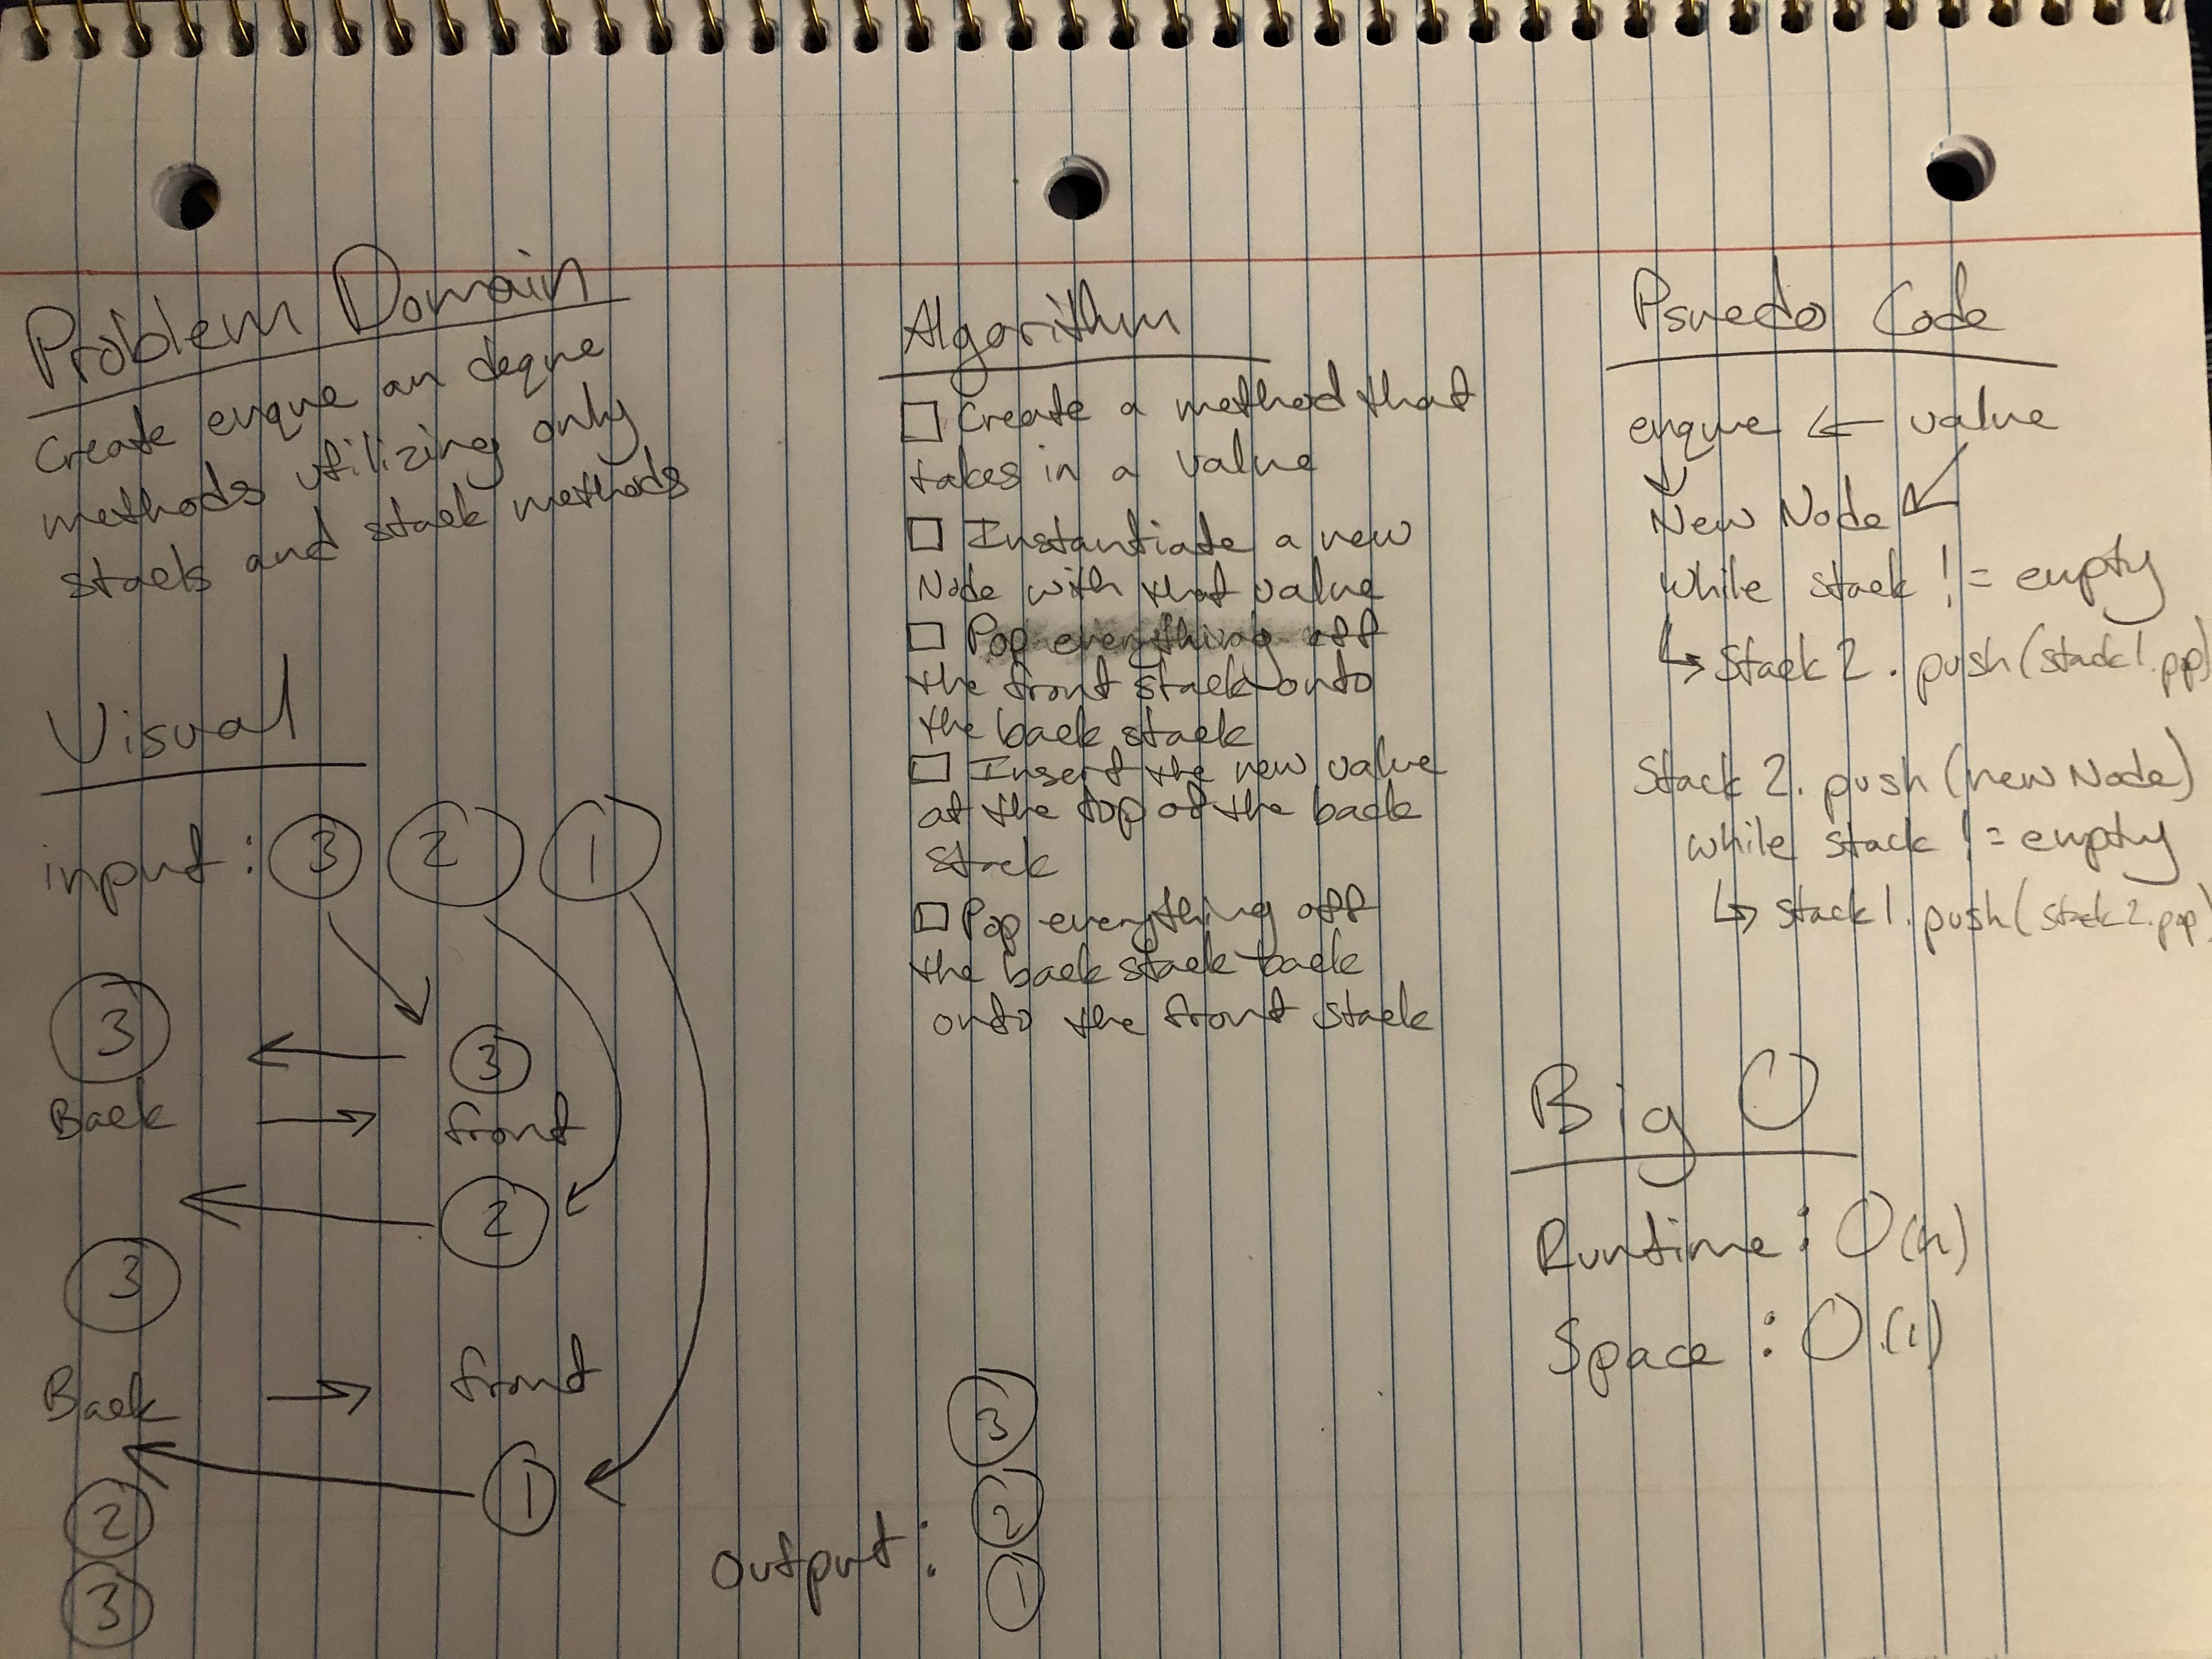 Problem Domain
Create enque an deque
methods utilizing only
stacks and stack methods
Visual
input : 3 2 1
3
3
Back
front
2
3
front
Back
1
2
3
Output : 3
2
1
Algorithm
Create a method that
takes in a value
Instantiate a new
Node with that value
Pop everything off
the front stack onto
the back stack
Insert the new value
at the top of the back
stack
Pop everything off
the back stack back
onto the front stack
Psuedo Code
enque ← value
New Node
while stack != empty
↳ Stack 2 . push (stack1.pop)
Stack 2. push (new Node)
while stack != empty
↳ stack1. push (stack2.pop)
Big O
Runtime : O(n)
Space : O(1)